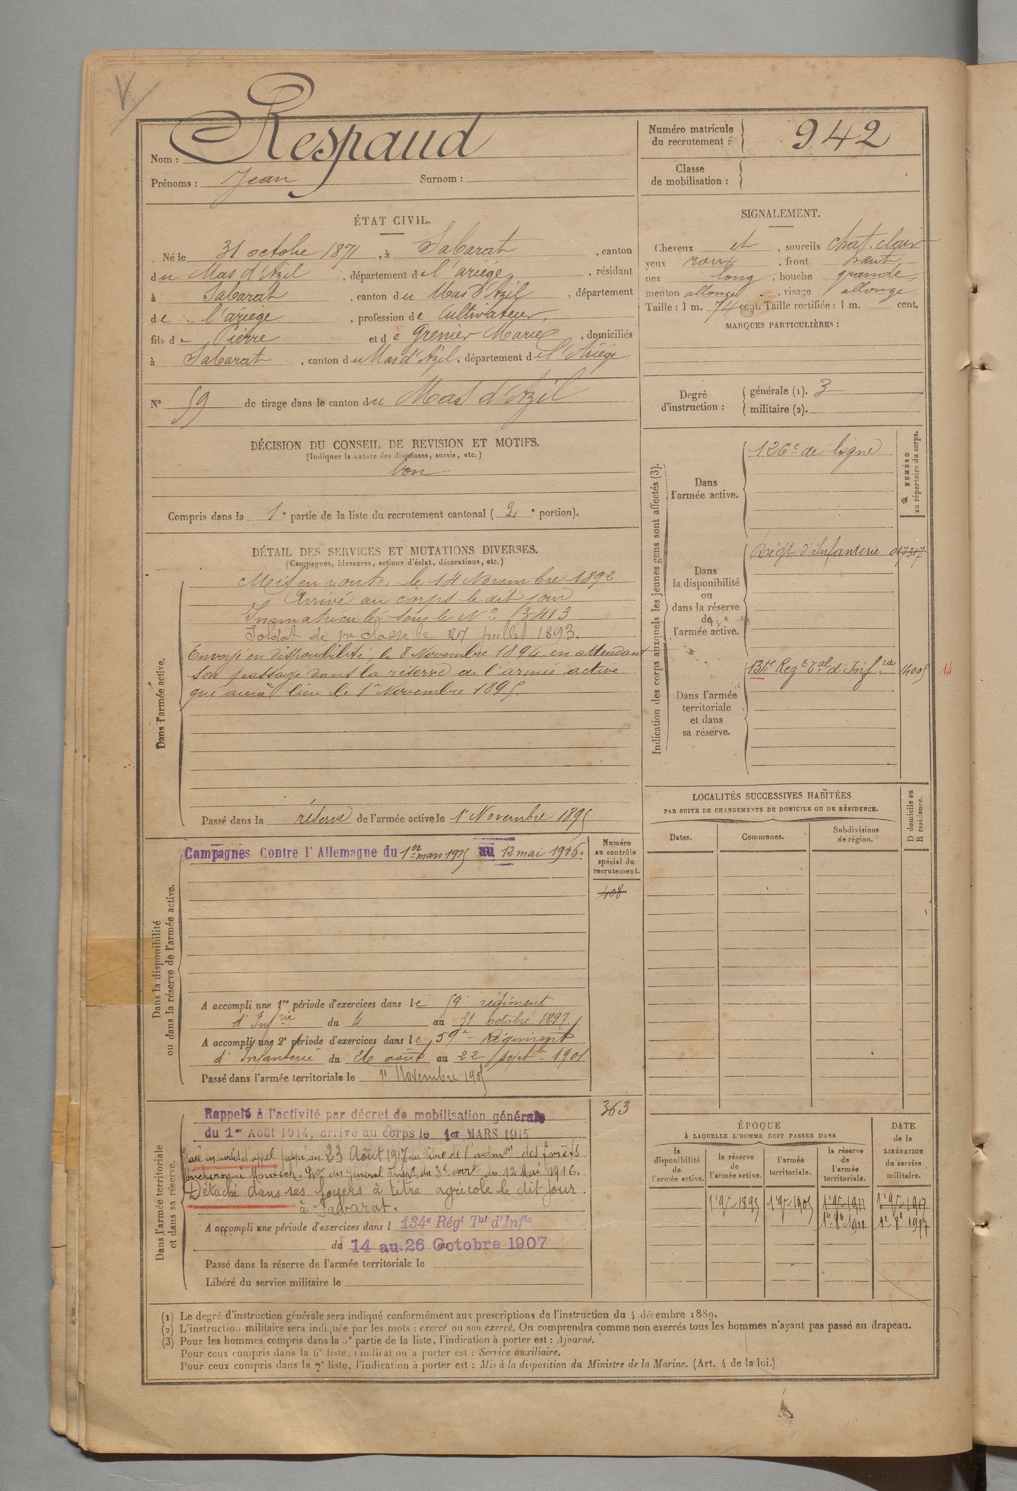 Nom : Respaud
Prénoms : Jean Surnom :
Numéro matricule du recrutement : 942
Classe de mobilisation :
ÉTAT CIVIL.
Né le 31 octobre 1871, à Sabarat, canton
du Mas d'Azil, département de l'ariège, résidant
à Sabarat, canton du Mas d'Azil, département
de l'ariège, profession de Cultivateur,
fils de Pierre et de Grenier Marie, domiciliés
à Sabarat, canton du Mas d'Azil, département de l'Ariège
N° 59 de tirage dans le canton du Mas d'Azil
SIGNALEMENT.
Cheveux et sourcils chat. clair
yeux roux, front haut,
nez long, bouche grande,
menton allongé, visage allongé
Taille : 1 m. 74 cent. Taille rectifiée : 1 m. cent.
MARQUES PARTICULIÈRES :
Degré d'instruction : générale (1). 3
militaire (2).
DÉCISION DU CONSEIL DE REVISION ET MOTIFS.
(Indiquer la nature des dispenses, sursis, etc.)
bon
Compris dans la 1e partie de la liste du recrutement cantonal (2e portion).
DÉTAIL DES SERVICES ET MUTATIONS DIVERSES.
(Campagnes, blessures, actions d'éclat, décorations, etc.)
Dans l'armée active.
Mis en route le 14 Novembre 1892
Arrivé au corps le dit jour
Immatriculé sous le N° 3413
Soldat de 1re classe le 27 juillet 1893.
Envoyé en disponibilité le 8 Novembre 1894 en attendant
son passage dans la réserve de l'armée active
qui aura lieu le 1er Novembre 1895
Passé dans la réserve de l'armée active le 1er Novembre 1895
Indication des corps auxquels les jeunes gens sont affectés (3).
NUMÉRO au répertoire du corps.
Dans l'armée active. 126e de ligne
Dans la disponibilité ou dans la réserve de l'armée active.
Régt d'Infanterie
Dans l'armée territoriale et dans sa réserve.
134e Regt Tal d'Infrie 14005 14
LOCALITÉS SUCCESSIVES HABITÉES
PAR SUITE DE CHANGEMENTS DE DOMICILE OU DE RÉSIDENCE.
Dates. Communes. Subdivisions de région. D domicile ou R résidence.
Dans la disponibilité ou dans la réserve de l'armée active.
Campagnes Contre l'Allemagne du 1er mars 1915 au 12 mai 1916.
Numéro au contrôle spécial du recrutement.
408
A accompli une 1re période d'exercices dans le 59e régiment
d'Infrie du 4 au 31 octobre 1897
A accompli une 2e période d'exercices dans le 59e Régiment
d'Infanterie du 26 août au 22 Sept. 1901
Passé dans l'armée territoriale le 1er Novembre 1905
Dans l'armée territoriale et dans sa réserve.
363
Rappelé à l'activité par décret de mobilisation générale
du 1er Août 1914, arrivé au corps le 1er MARS 1915
jusqu'au 23 Août 1917 au titre de l'admon des forêts
du 12 Mai 1916.
Détaché dans ses foyers à titre agricole le dit jour
à Sabarat.
A accompli une période d'exercices dans l 134e Régt Tal d'Infie
du 14 au 26 Octobre 1907
Passé dans la réserve de l'armée territoriale le
Libéré du service militaire le
ÉPOQUE
À LAQUELLE L'HOMME DOIT PASSER DANS
la disponibilité de l'armée active. la réserve de l'armée active. l'armée territoriale. la réserve de l'armée territoriale.
DATE de la LIBÉRATION du service militaire.
1er 9bre 1895 1er 9bre 1905 1er 9bre 1911 1er 9bre 1917
(1) Le degré d'instruction générale sera indiqué conformément aux prescriptions de l'instruction du 4 décembre 1889.
(2) L'instruction militaire sera indiquée par les mots : exercé ou non exercé. On comprendra comme non exercés tous les hommes n'ayant pas passé au drapeau.
(3) Pour les hommes compris dans la 5e partie de la liste, l'indication à porter est : Ajourné.
Pour ceux compris dans la 6e liste, l'indication à porter est : Service auxiliaire.
Pour ceux compris dans la 7e liste, l'indication à porter est : Mis à la disposition du Ministre de la Marine. (Art. 4 de la loi.)